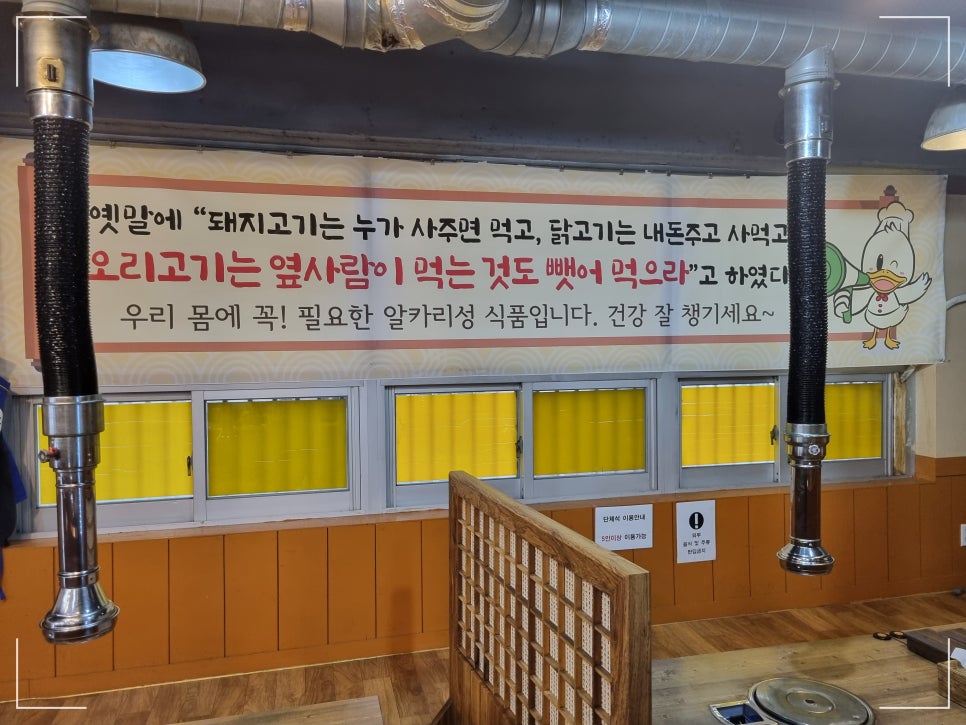 옛말에 "돼지고기는 누가 사주면 먹고, 닭고기는 내돈주고 사먹고
오리고기는 옆사람이 먹는것도 뺏어 먹으라"고 하였다
우리 몸에 꼭! 필요한 알카리성 식품입니다. 건강 잘 챙기세요~
단체석 이용안내
5인이상 이용가능
외부
음식 및 주류
반입금지